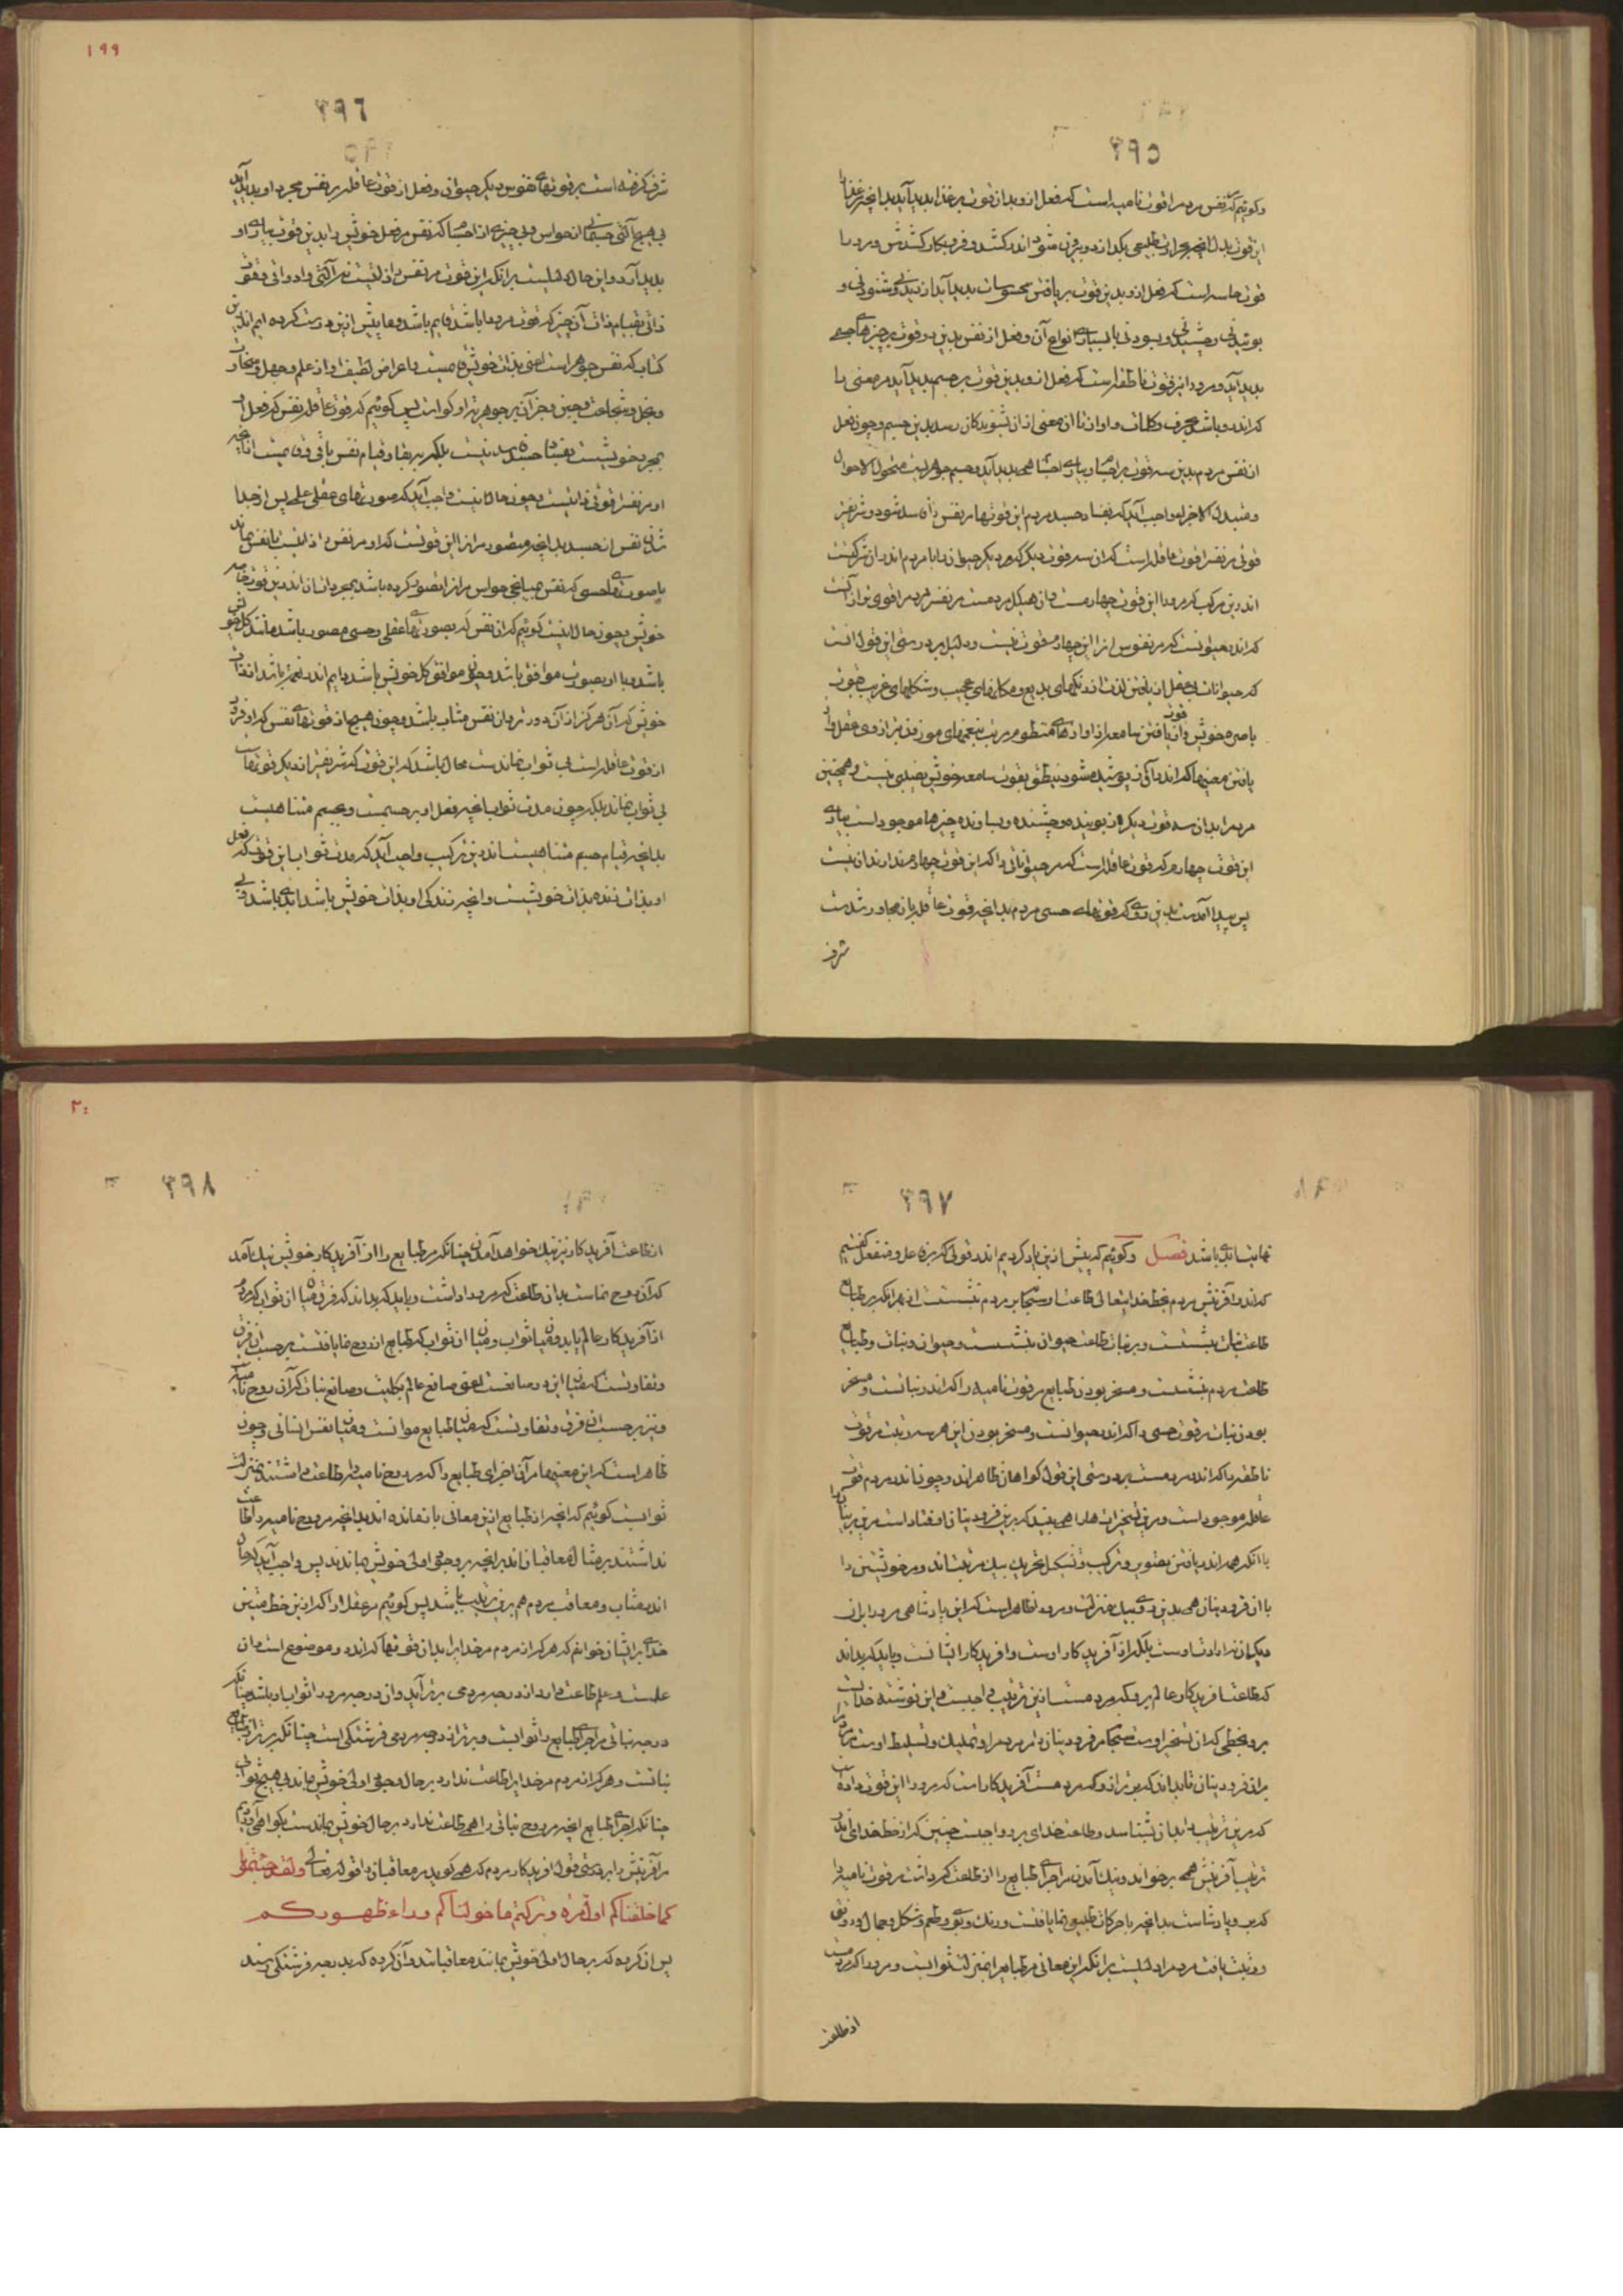 ۳۹۵
وگوئیم که نفس مردم را قوت نامیه است که فعل ازو بدان قوت بر غذا پدید آید بدانچه مر غذا را
این قوت بدل آنچه بحرارت طبیعی بگدازد و بیرون شود اندر کشد و فرو بکار کشدش و مرو را
قوت حاسه است که فعل ازو بدین قوت بر یافتن محسوسات پدید آید از دیدنی و شنودنی و
بوئیدنی و چشیدنی و بسودنی با بسیاری انواع آن و فعل از نفس بدین دو قوت بر چیزهای جسم
پدید آید و مرو را نیز قوت ناطقه است که فعل ازو بدین قوت بر جسم پدید آید مر معنی را
که اندرو باشد بحروف و کلمات و آواز تا آن معنی ازان بشنوندگان رسد بدین جسم و چون فعل
از نفس مردم بدین سه قوت بر اجسام و بیاری اجسام همی پدید آید و جسم جوهریست متحول الاحوال
و متبدل الاجزا واجب آید که بفساد جسد مردم این قوتها مر نفس را فاسد شود و شریفتر
قوتی مر نفس را قوت عاقله است که ازان سه قوت دیگر که مر دیگر حیوان را با مردم اندران شرکتست
اندرین مرکب که مرو را این قوت چهارمست
که اندر حیوانست که مر نفوس آنرا این چهارم قوت نیست و دلیل بر درستی این قول آنست
که حیوانات بی عقل از یافتن لذت از رنگهای بدیع و مکانهای عجیب و شکلهای غریب بقوت
باصره خویش و از یافتن سامعه از آوازهای منظوم مرتب بنغمهای موزون نیز از روی عقل و از
یافتن معنیها که اندر آن پوشیده شود بنطق بقوت سامعه خویش بی نصیب نیست و همچنین
مر مردم را بدان سه قوت دیگر که آن بوینده و چشنده و بساونده چیزها موجود است بیاری
این قوت چهارم که قوت عاقله است که مر حیواناتی را که این قوت چهارم ندارند آن نیست
پس پیدا آمد بدین روی که قوتهای حسی مردم بدانچه قوت عاقله را مجاور شدست
شرف
۱۹۹
۳۹۶
شرف گرفته است بر قوتهای نفوس دیگر حیوان و فعل از قوت عاقله بر نفس مجرد او پدید آید
بی هیچ آلتی جسمانی از حواس و بی چیزی از اجسام که نفس مر فعل خویش را بدین قوت بیاری او
پدید آرد و این حال دلیلست برانکه این قوت مر نفس را ذاتیست نه آلتی و ادواتی و قوت
ذاتی بقیام ذات آن چیز که قوت مرو را باشد قایم باشد و ما پیش ازین درست کرده ایم اندرین
کتاب که نفس جوهر است
و بخل و شجاعت و جبن و جز آن بر جوهریت او گواست پس گوئیم که قوت عاقله نفس که فعل او
مجرد خویشست بفساد جسد فاسد نیست بلکه بر بقا و قیام نفس باقی و قایمست
او مر نفس را قوتی ذاتیست و چون حال اینست واجب آید که صورتهای عقلی علمی پس از جدا
شدن نفس از جسد بدانچه متصور مر آنرا این قوتست که او مر نفس را ذاتیست با نفس بماند
یا صورتهای حسی که نفس بمیانجی حواس مر آنرا تصور کرده باشد
خویش و چون حال اینست گوئیم که آن نفس که بصورتهای عقلی و حسی مصور باشد مانند کل خویش
باشد و با او بصورت موافق باشد و چون موافق کل خویش باشد دایم اندر نعمت باشد
خویش که آن هرگز ازان دور نشود آن نفس مثاب باشد و چون هیچ از قوتهای نفس که او فرود
از قوت عاقله است بی ثواب نماندست محال باشد که این قوت که شریفتر از دیگر قوتهاست
بی ثواب بماند بلکه چون مدت ثواب آنچه فعل او بر جسمست و جسم متناهیست
بدانچه قیام جسم متناهیست اندرین ترکیب واجب آید که مدت ثواب این قوت که فعل
او بذات زنده بذات خویشست و آنچه زندگی او بذات خویش باشد ابدی باشد و بی
۳۹۷
نهایت ابدی باشد فصل وگوئیم که پیش ازین یاد کردیم اندر قولی که بر فاعل و منفعل گفتیم
که اندر آفرینش مردم بخط خدایتعالی طاعت او سبحانه بر مردم نبشتست از بهر آنکه بر طبایع
طاعت نبات نبشتست و بر نبات طاعت حیوان نبشتست و بر حیوان و نبات و طبایع
طاعت مردم نبشتست و مسخر بودن طبایع مر قوت نامیه را که اندر نباتست و مسخر
بودن نبات مر قوت حسی را که اندر حیوانست و مسخر بودن این هر سه مرتبت مر قوت
ناطقه را که اندر مردمست بر درستی این قول گواهان ظاهراند و چون اندر مردم قوت
عاقله موجود است و مرین تسخیرات را همی بیند که برین فرودینان اوفتاد است
با آنکه همه اندر یافتن تصویر و ترکیب و تشکیل و تحریک بیک مرتبت‌اند و مر خویشتن را
با آن فرودینان همی بدین روی بیک منزلت و مرورا ظاهر است که این پادشاهی مرورا بران
دیگران نه از ذات اوست بلکه از آفریدگار اوست و آفریدگار ایشانست و باید که بداند
که طاعت آفریدگار عالم برو که مردمست ازین ترتیب واجبست و این نوشته خدایست
برو بخطی که آن تسخیر اوست سبحانه مر فرودینان را مر مردم را و تملیک و تسلیط اوست مر مردم را
بران فرودینان تا بداند که برتر ازو که مردمست آفریدگار است که مرورا این قوت داده است
که مرین ترتیب را بدان بشناسد و طاعت خدای برو واجبست چنین که از خط خدای اندر
ترتیب آفرینش همی برخواند و نیک آمدن مر اجزای طبایع را از طاعت که داشت مر قوت نامیه را
که برو پادشاست بدانچه با حرکات طبیعی نما یافتست و رنگ و بوی و طعم و شکل و جمال و رونق
و زینت یافت مر مردم را دلیلست برانکه این معانی مر طبایع را بمنزلت ثوابست و مرورا که مردمست
از طاعت
۲۰۰
۳۹۸
از طاعت آفریدگار نیز نیک خواهد آمدن چنانکه مر طبایع را از آفریدگار خویش نیک آمد
که آن روح نماست بدان طاعت که مرورا داشت و باید که بداند که فرق میان ثواب که مردم
از آفریدگار عالم یابد و میان ثواب که طبایع از روح نما یافتست بر حسب آن فرق
و تفاوتست که میان این دو صانعست اعنی صانع عالم بکلیت و صانع نبات که آن روح نامیه است
و نیز بر حسب آن فرق و تفاوتست که میان طبایع مواتست و میان نفس انسانی و چون
ظاهر است که این معنیها مر آن اجزای طبایع را که مر روح نامیه را طاعت داشتند بمنزلت
ثوابست گوئیم که آنچه از طبایع ازین معانی باز مانده اند بدانچه مر روح نامیه را طاعت
نداشتند بر مثال معاقبان‌اند بدانچه بر وجود اولی خویش بماندند پس واجب آید که حال
اندر مثاب و معاقب مردم هم برین ترتیب باشد پس گوئیم مر عقلا را که ازین خط متین
خدای بر ایشان خوانیم که هر که از مردم مر خدایرا بدان قوتها که اندرو موضوع است و آن
علمست و عمل طاعت دارد از درجه مردمی برتر آید و آن درجه مرورا ثواب او باشد چنانکه
درجه نباتی مر اجزای طبایع را ثوابست و برتر از درجه مردمی فرشتگی است چنانکه برتر از طبایع
نباتست و هر که از مردم مر خدایرا طاعت ندارد بر حال وجود اولی خویش بماند بی هیچ ثواب
چنانکه اجزای طبایع آنچه مر روح نباتی را همی طاعت ندارد بر حال خویش بماندست و گواهی آوردیم
مر آفرینش را بر درستی قول آفریدگار مردم که همی گوید مر معاقبان را قوله تعالی ولقد جئتمونا
کما خلقناکم اول مرة و ترکتم ما خولناکم وراء ظهورکم
پس آن گروه که بر حال اولی خویش بمانند معاقب باشند و آن گروه که بدرجه فرشتگی رسند